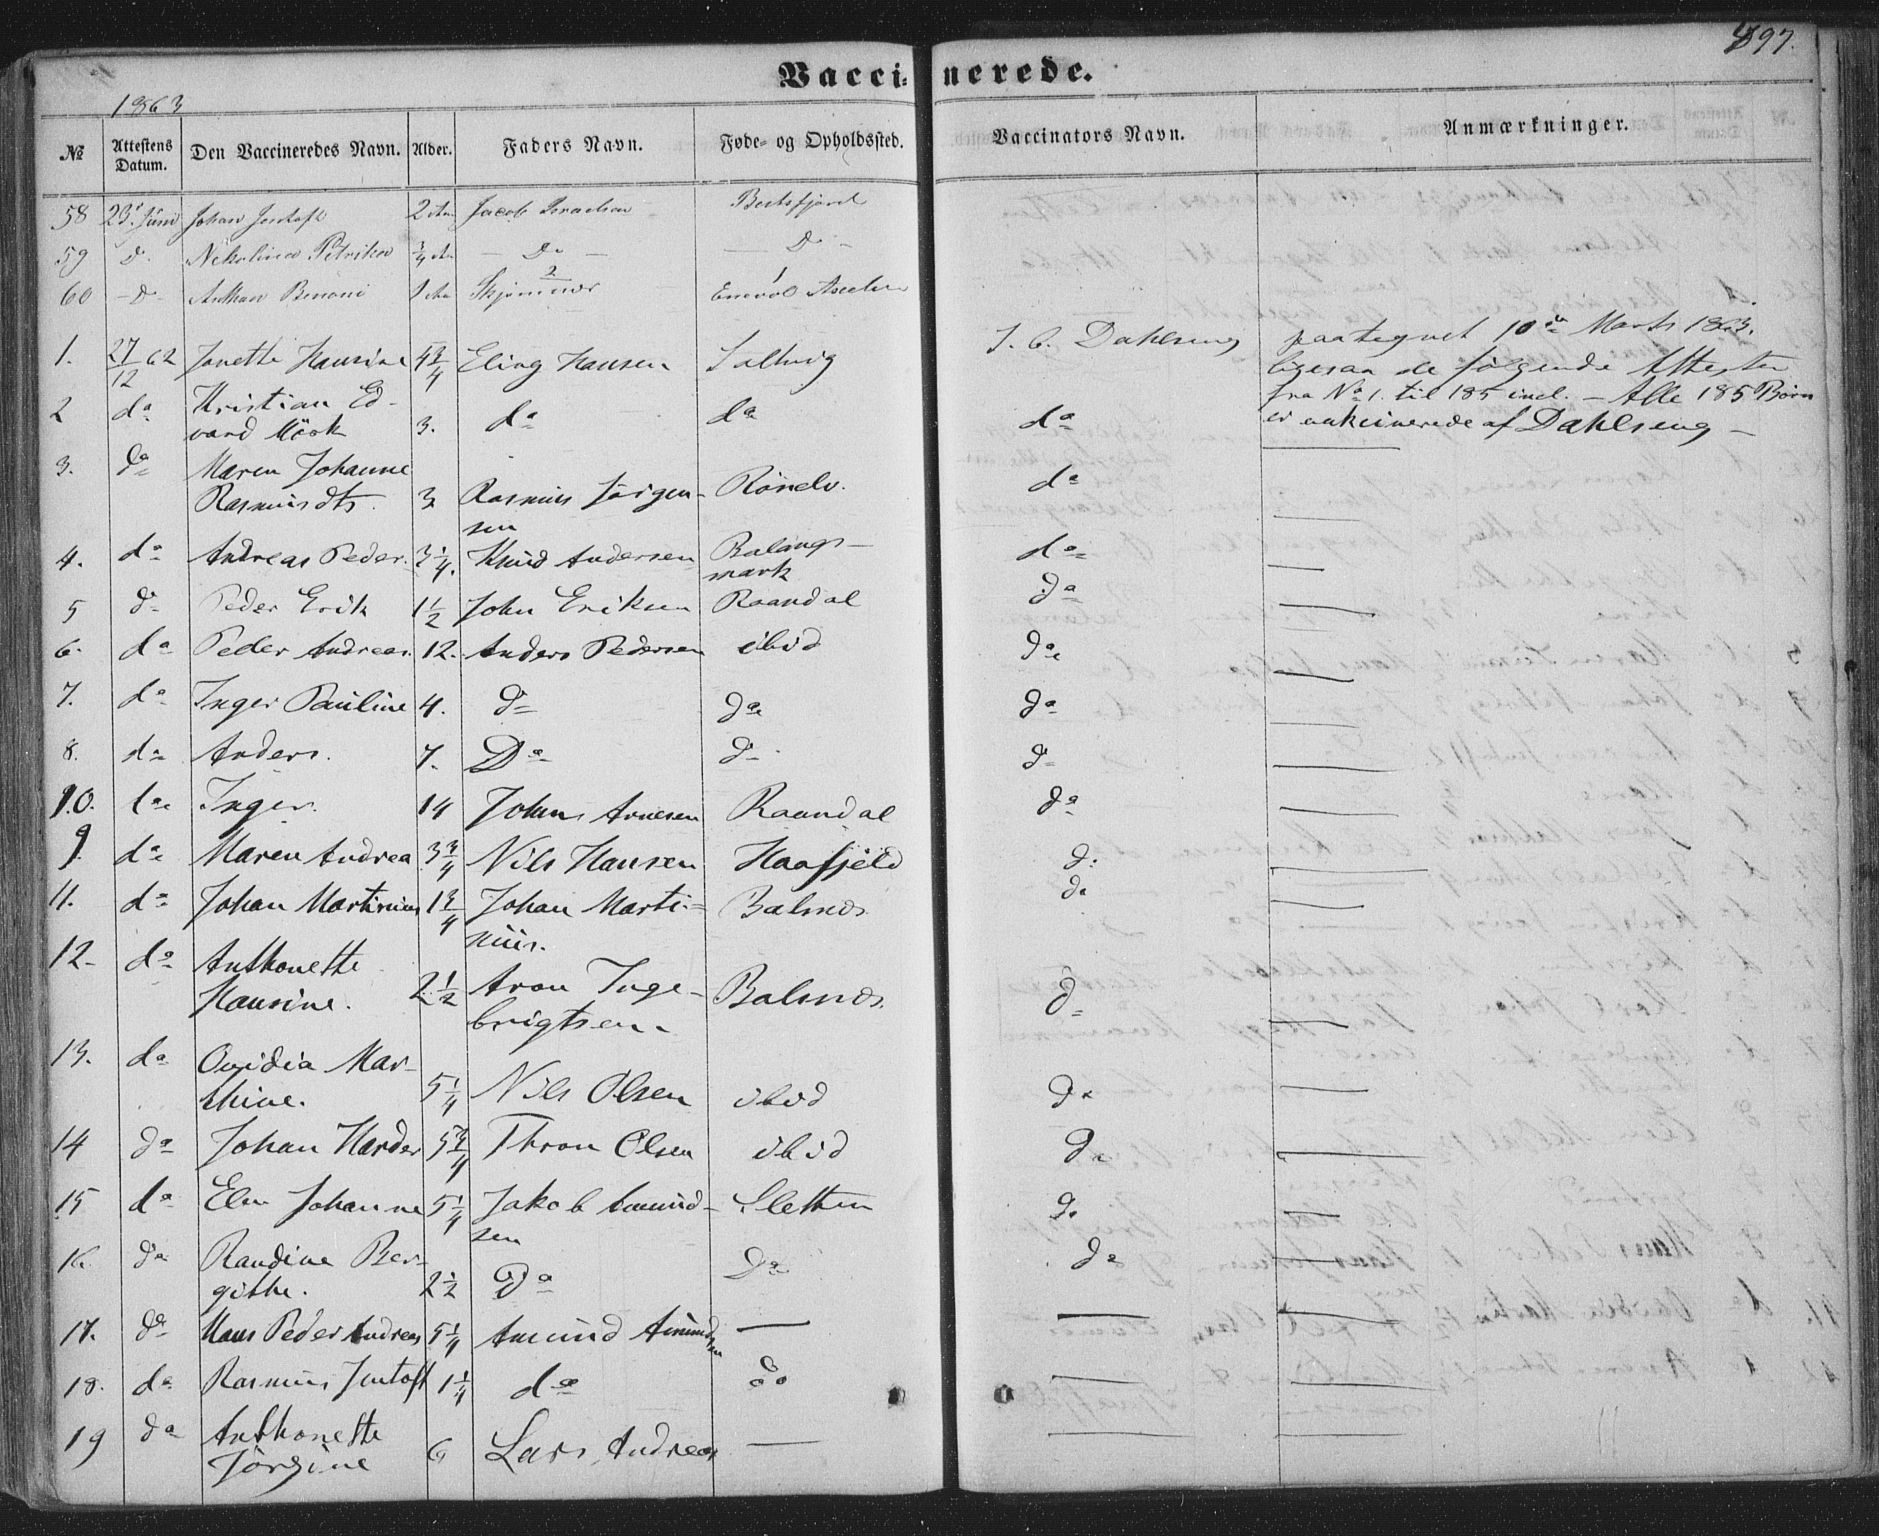 497.
Vaccinerede.
1863
№ Attestens Datum. Den Vaccineredes Navn. Alder. Faders Navn. Føde- og Opholdssted. Vaccinators Navn. Anmærkninger.
58 23' Juni Johan Jentoft 2 Jacob Israelsen
59 D Petrika 3/4 — Do — — Do —
60 — D — Anthon Benoni 1
1. 27/12 62 Janette Hansine 4 3/4 Eling Hansen Saltvig J. C. Dahlseng paategnet 10de Marts 1863.
ligesaa de følgende Attester
fra No 1. til 185 incl. — Alle 185 Børn
er vakcinerede af Dahlseng —
2 do Kristian Ed-
vard Mörk 3. do do do
3. do Maren Johanne
Rasmusdtr. 3 Rasmus Jörgen-
sen Rönelv. do
4. do Andreas Peder. 3 1/4. Knud Andersen Balangs-
mark do
5 do Peder Erik 1 1/2 John Eriksen Raandal do
6. do Peder Andreas. 12. Anders Pedersen ibid do
7. do Inger Pauline 4. do do do
8. do Anders. 7. Do do do
10. do Inger. 14 Johns Arnesen Raandal do
9. do Maren Andrea 3 3/4 Nils Hansen Haafjeld do
11. do Johan Martinius 1 3/4 Johan Marti-
nius. Balnes do
12. do Anthonette
Hansine. 2 1/2 Aron Inge-
brigtsen Balnes do
13. do Ovidia Mar-
thine. 5 1/4 Nils Olsen ibid do
14 do Johan Harder 5 3/4 Thron Olsen ibid do
15 do Elen Johanne 5 1/4 Jakob Amund-
sen Sletten do
16. do Randine Ber-
githe. 2 1/2 do Do do
17. do Hans Peder Andreas 5 1/4 Amund Amundsen —
18. do Rasmus Jentoft 1 1/4 do do
19 do Anthonette
Jörgine 6 Lars Andreas —